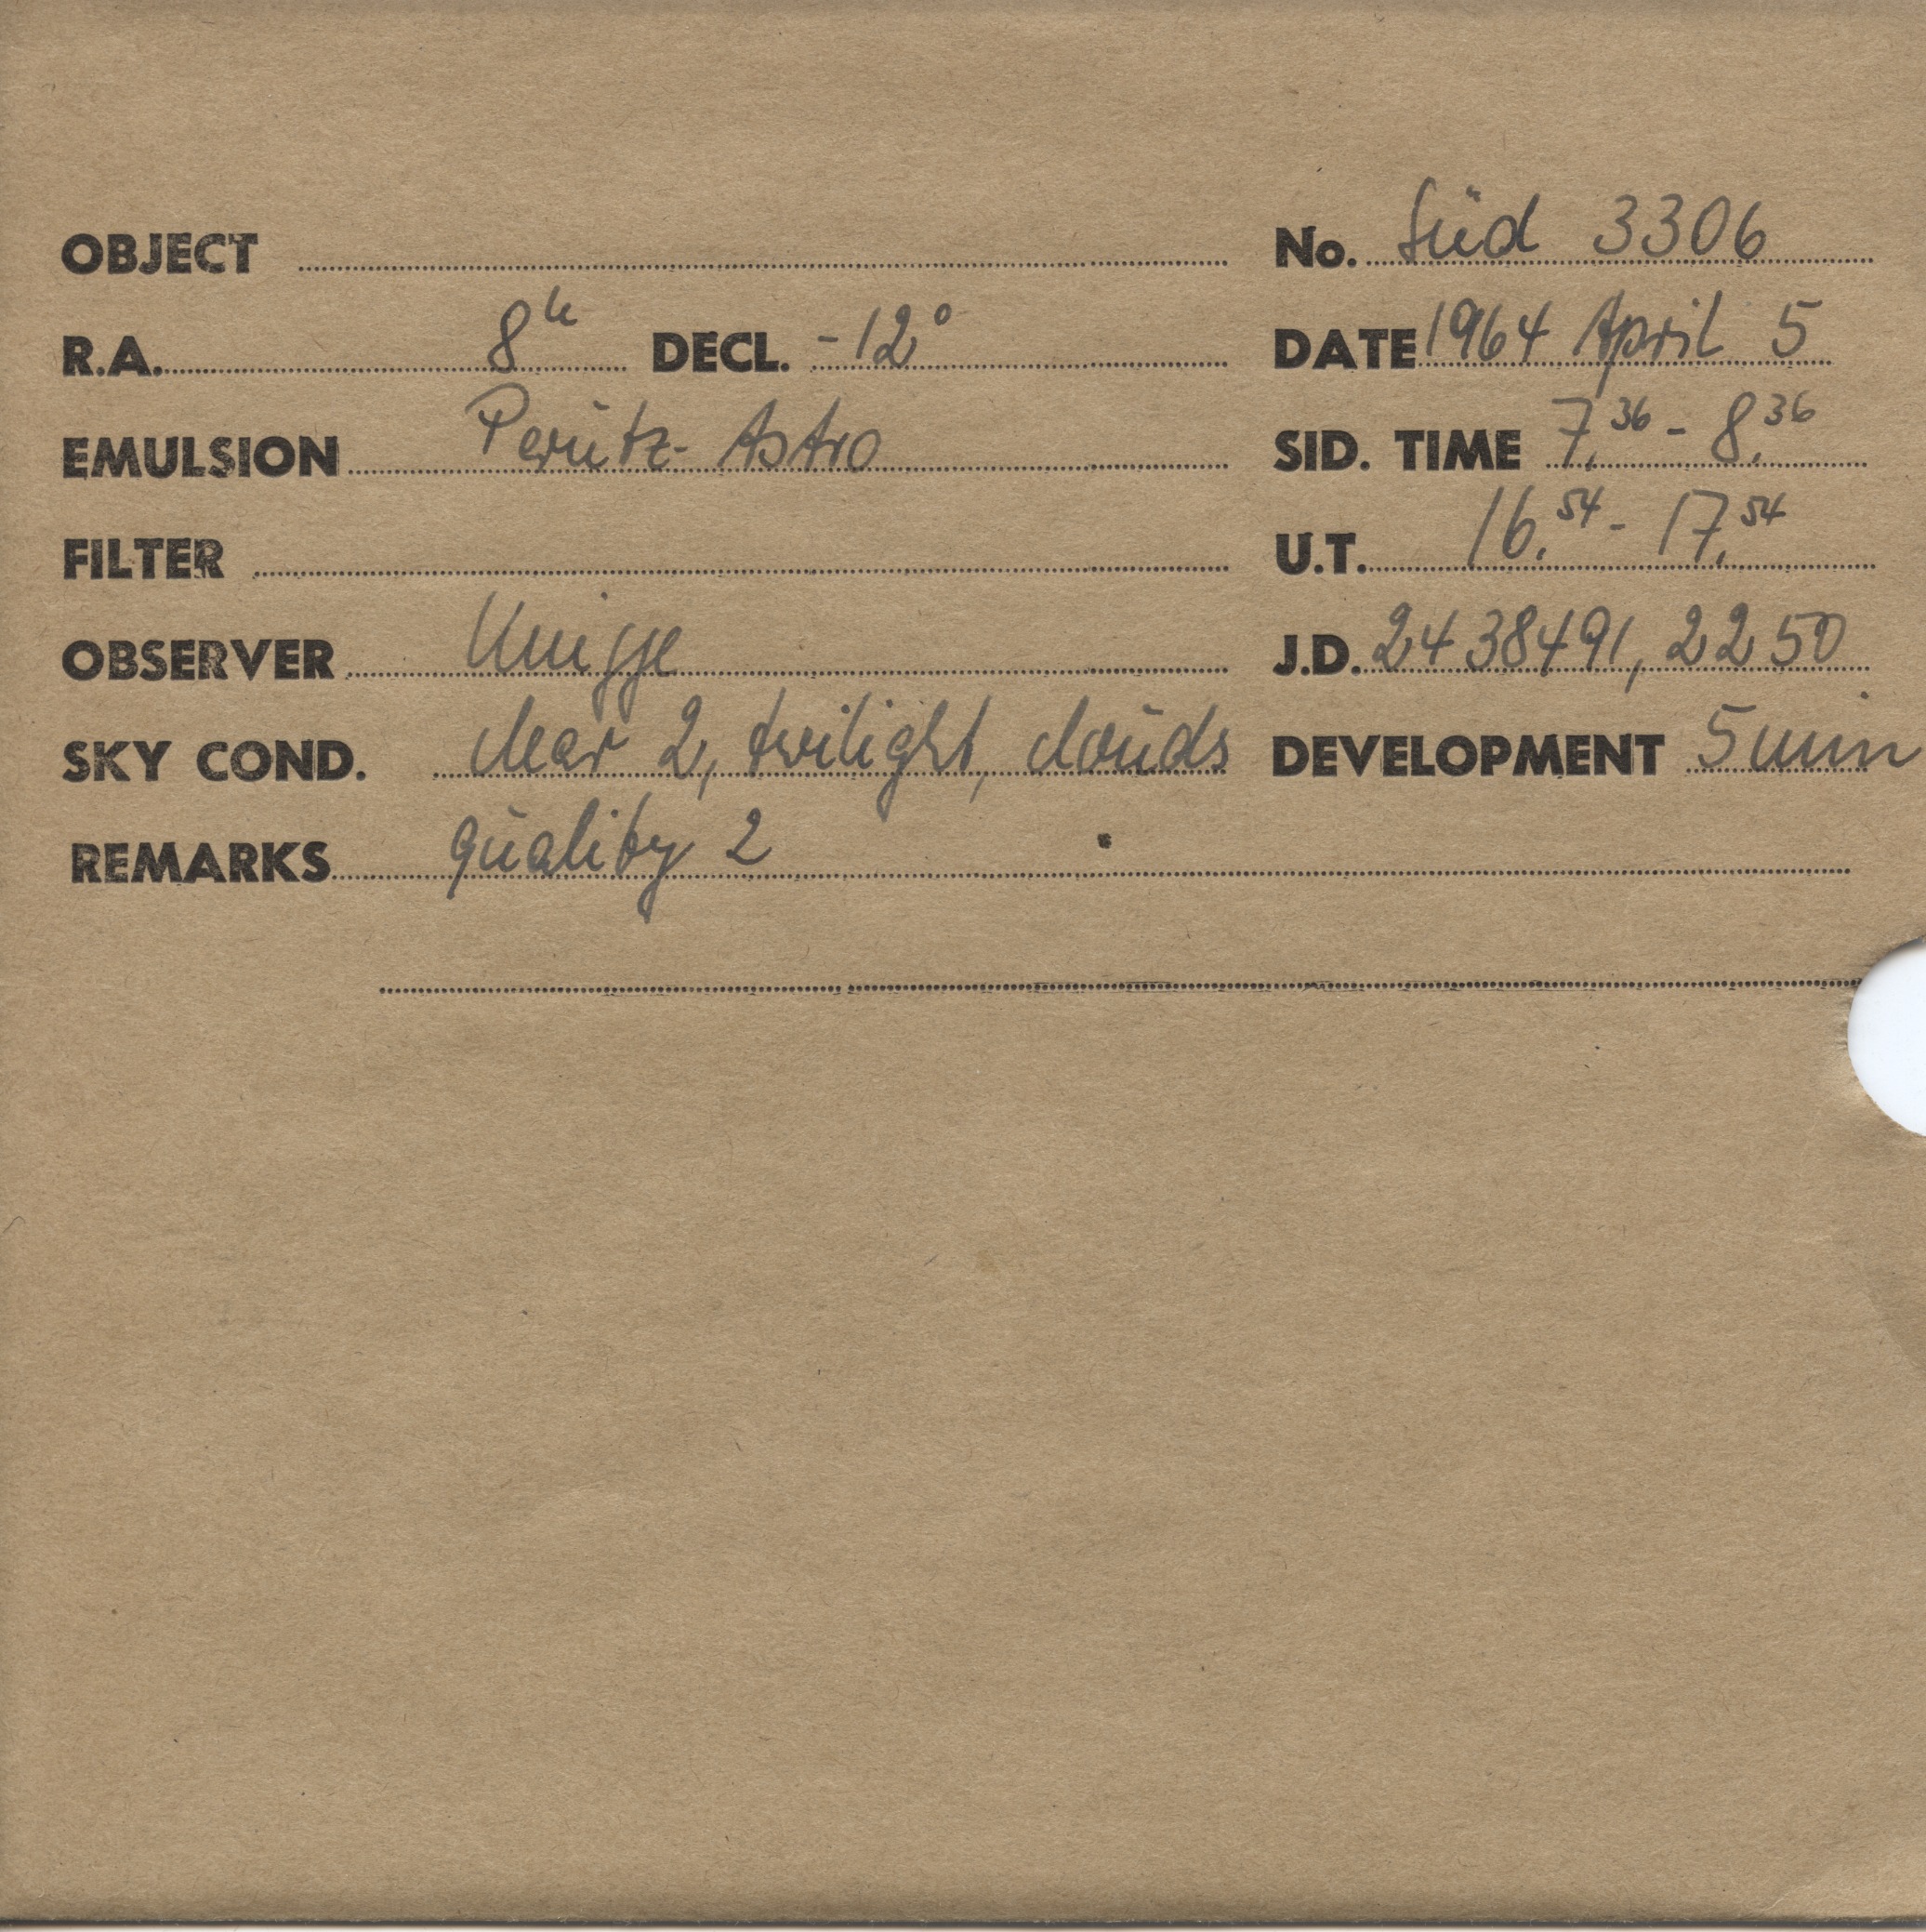 OBJECT No. Süd 3306
R.A. 8h DECL. -12° DATE 1964 April 5
EMULSION Perutz-Astro SID. TIME 7.36 - 8.36
FILTER U.T. 16.54 - 17.54
OBSERVER Knigge J.D. 2438491,2250
SKY COND. clear 2, twilight, clouds DEVELOPMENT 5 min
REMARKS quality 2